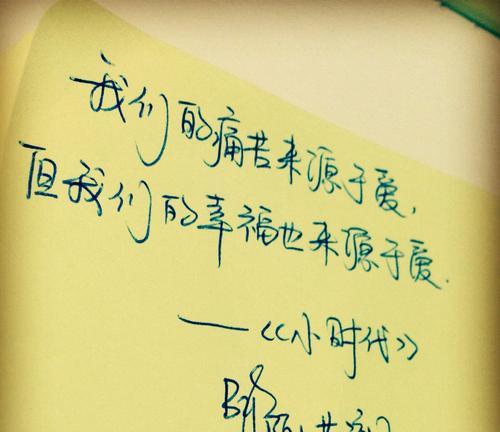 我们的痛苦来源于爱,
但我们的幸福也来源于爱.
——《小时代》